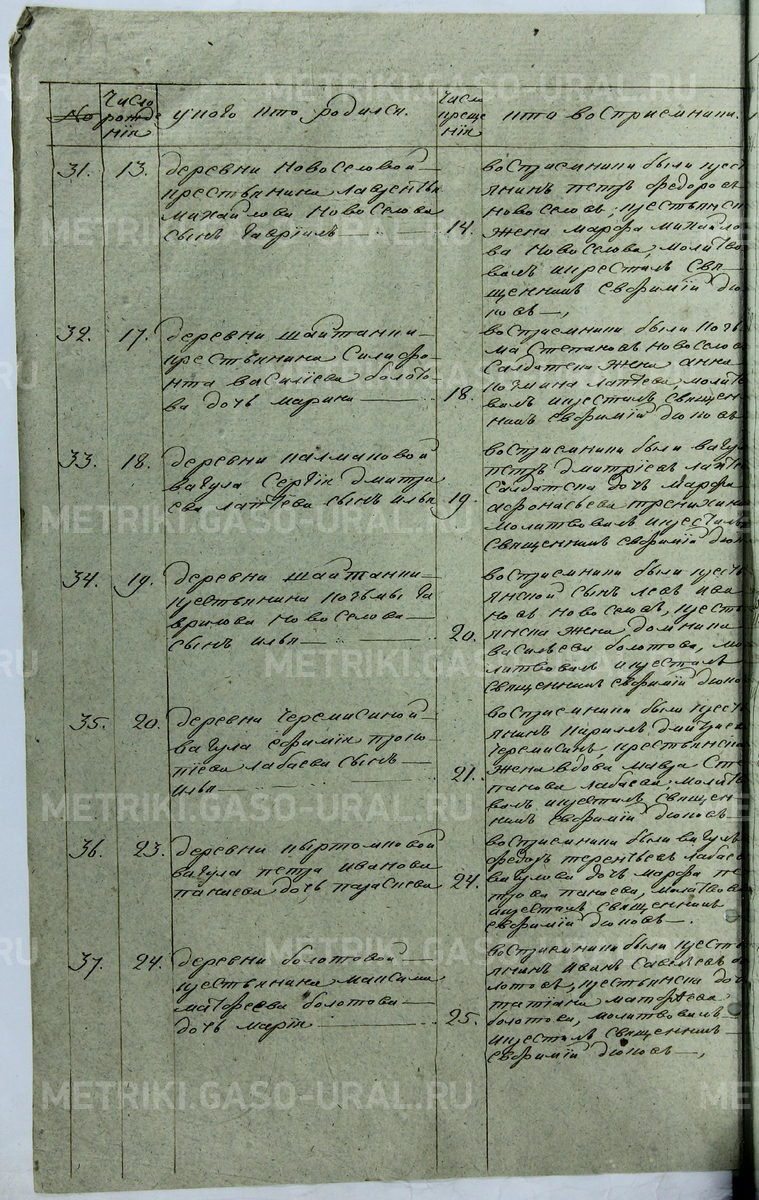 No
Число рожде нія
у кого кто родился.
Число креще нія
кто восприемники.
31. 13. деревни Новоселовой
крестьянина Лаврентья
Михайлова Новоселова
сынъ Гавріилъ
14.
восприемники были крест
янинъ Петръ Федоровъ
Новоселовъ, крестьянск
жена Марфа Михайло
ва Новоселова, молитво
валъ и крестилъ свя
щенникъ Евфимій
32. 17. деревни Шайтанки
крестьянина Силифо
нта Василіева Болото
ва дочь Марина
18.
восприемники были Козь
ма Степановъ Новоселов
салдатска жена Анна
Козмина Лаптева, молит
валъ и крестилъ священ
никъ Евфимій
33. 18. деревни Калмаковой
вагула Сергія Дмитрі
ева Лаптева сынъ Илья
19.
восприемники были вагул
Петръ Дмитріевъ Лапте
салдатска дочь Марфа
Афонасьева
молитвовалъ и крестилъ
священникъ Евфимій
34. 19. деревни Шайтанки
крестьянина Козьмы Га
врилова Новоселова
сынъ Илья
20.
восприемники были крест
янской сынъ Левъ Ива
новъ Новоселовъ, кресть
янска жена Домника
Васильева Болотова, мо
литвовалъ и крестилъ
священникъ Евфимій
35. 20. деревни Черемисиной
вагула Ефимія Проко
піева Лабаева сынъ
Илья
21.
восприемники были крест
янинъ Кирилъ Дмитріев
Черемисинъ, крестьянска
жена вдова Мавра Сте
панова Лабаева, молитв
валъ и крестилъ священ
никъ Евфимій
36. 23. деревни Пыртомковой
вагула Петра Иванова
Панаева дочь Параскева
24.
восприемники были вагулъ
Федоръ Терентьевъ Лабаев
вагулска дочь Марфа Пе
трова Панаева, молитвова
и крестилъ священникъ
Евфимій
37. 24. деревни Болотовой
крестьянина Максима
Матфеева Болотова
дочь Марія
25.
восприемники были крест
янинъ Иванъ Савельевъ Бо
лотовъ, крестьянска доч
Татіана Матфеева
Болотова, молитвовалъ
и крестилъ священникъ
Евфимій
METRIKI.GASO-URAL.RU